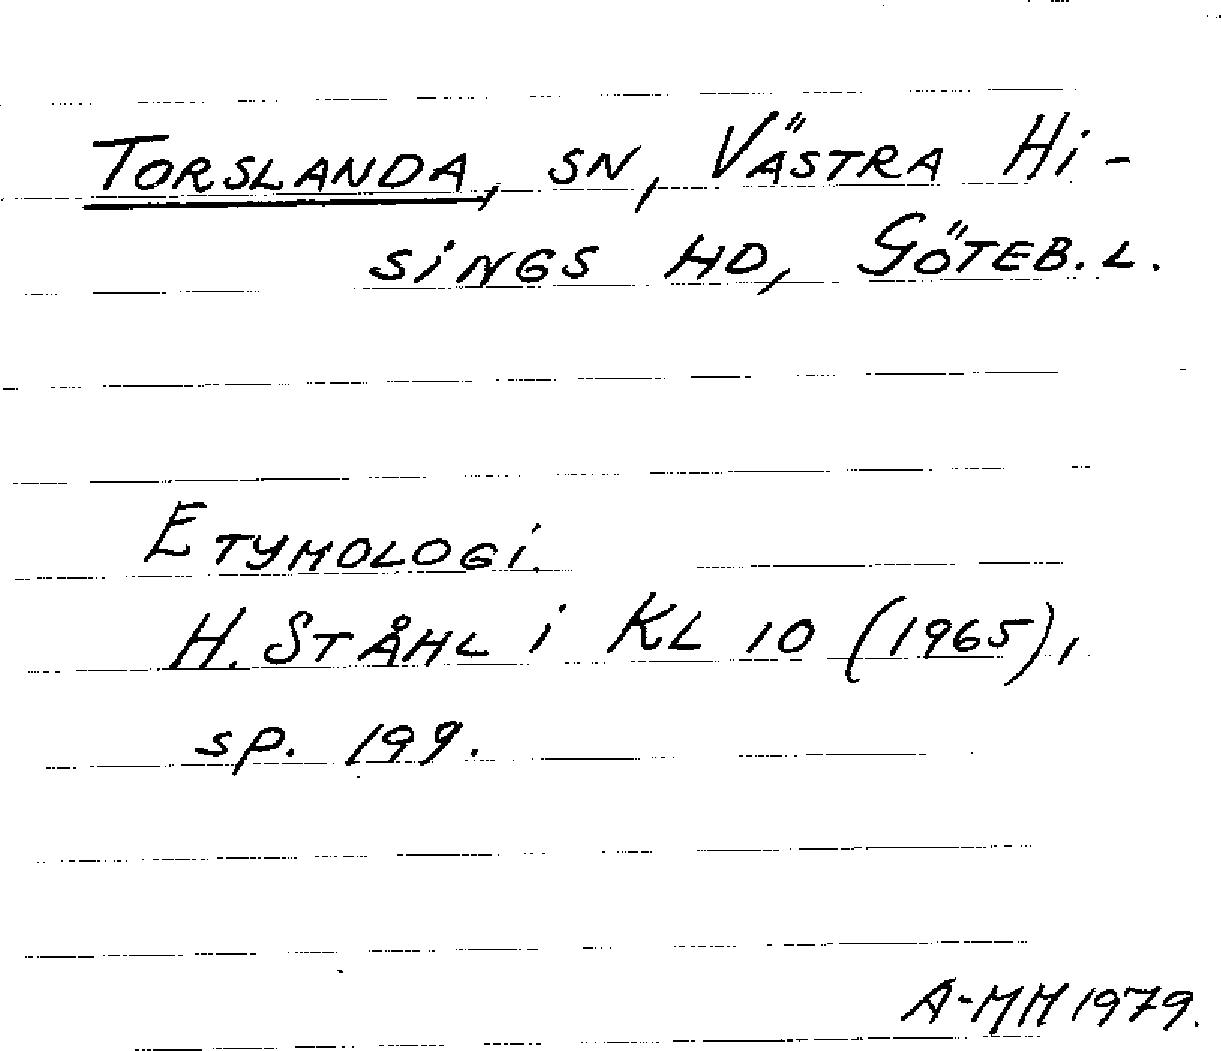 TORSLANDA, SN, VÄSTRA HI-
SINGS HD, GÖTEB. L.
ETYMOLOGI.
H. STÅHL i KL 10 (1965),
sp. 199.
A-MH 1979.